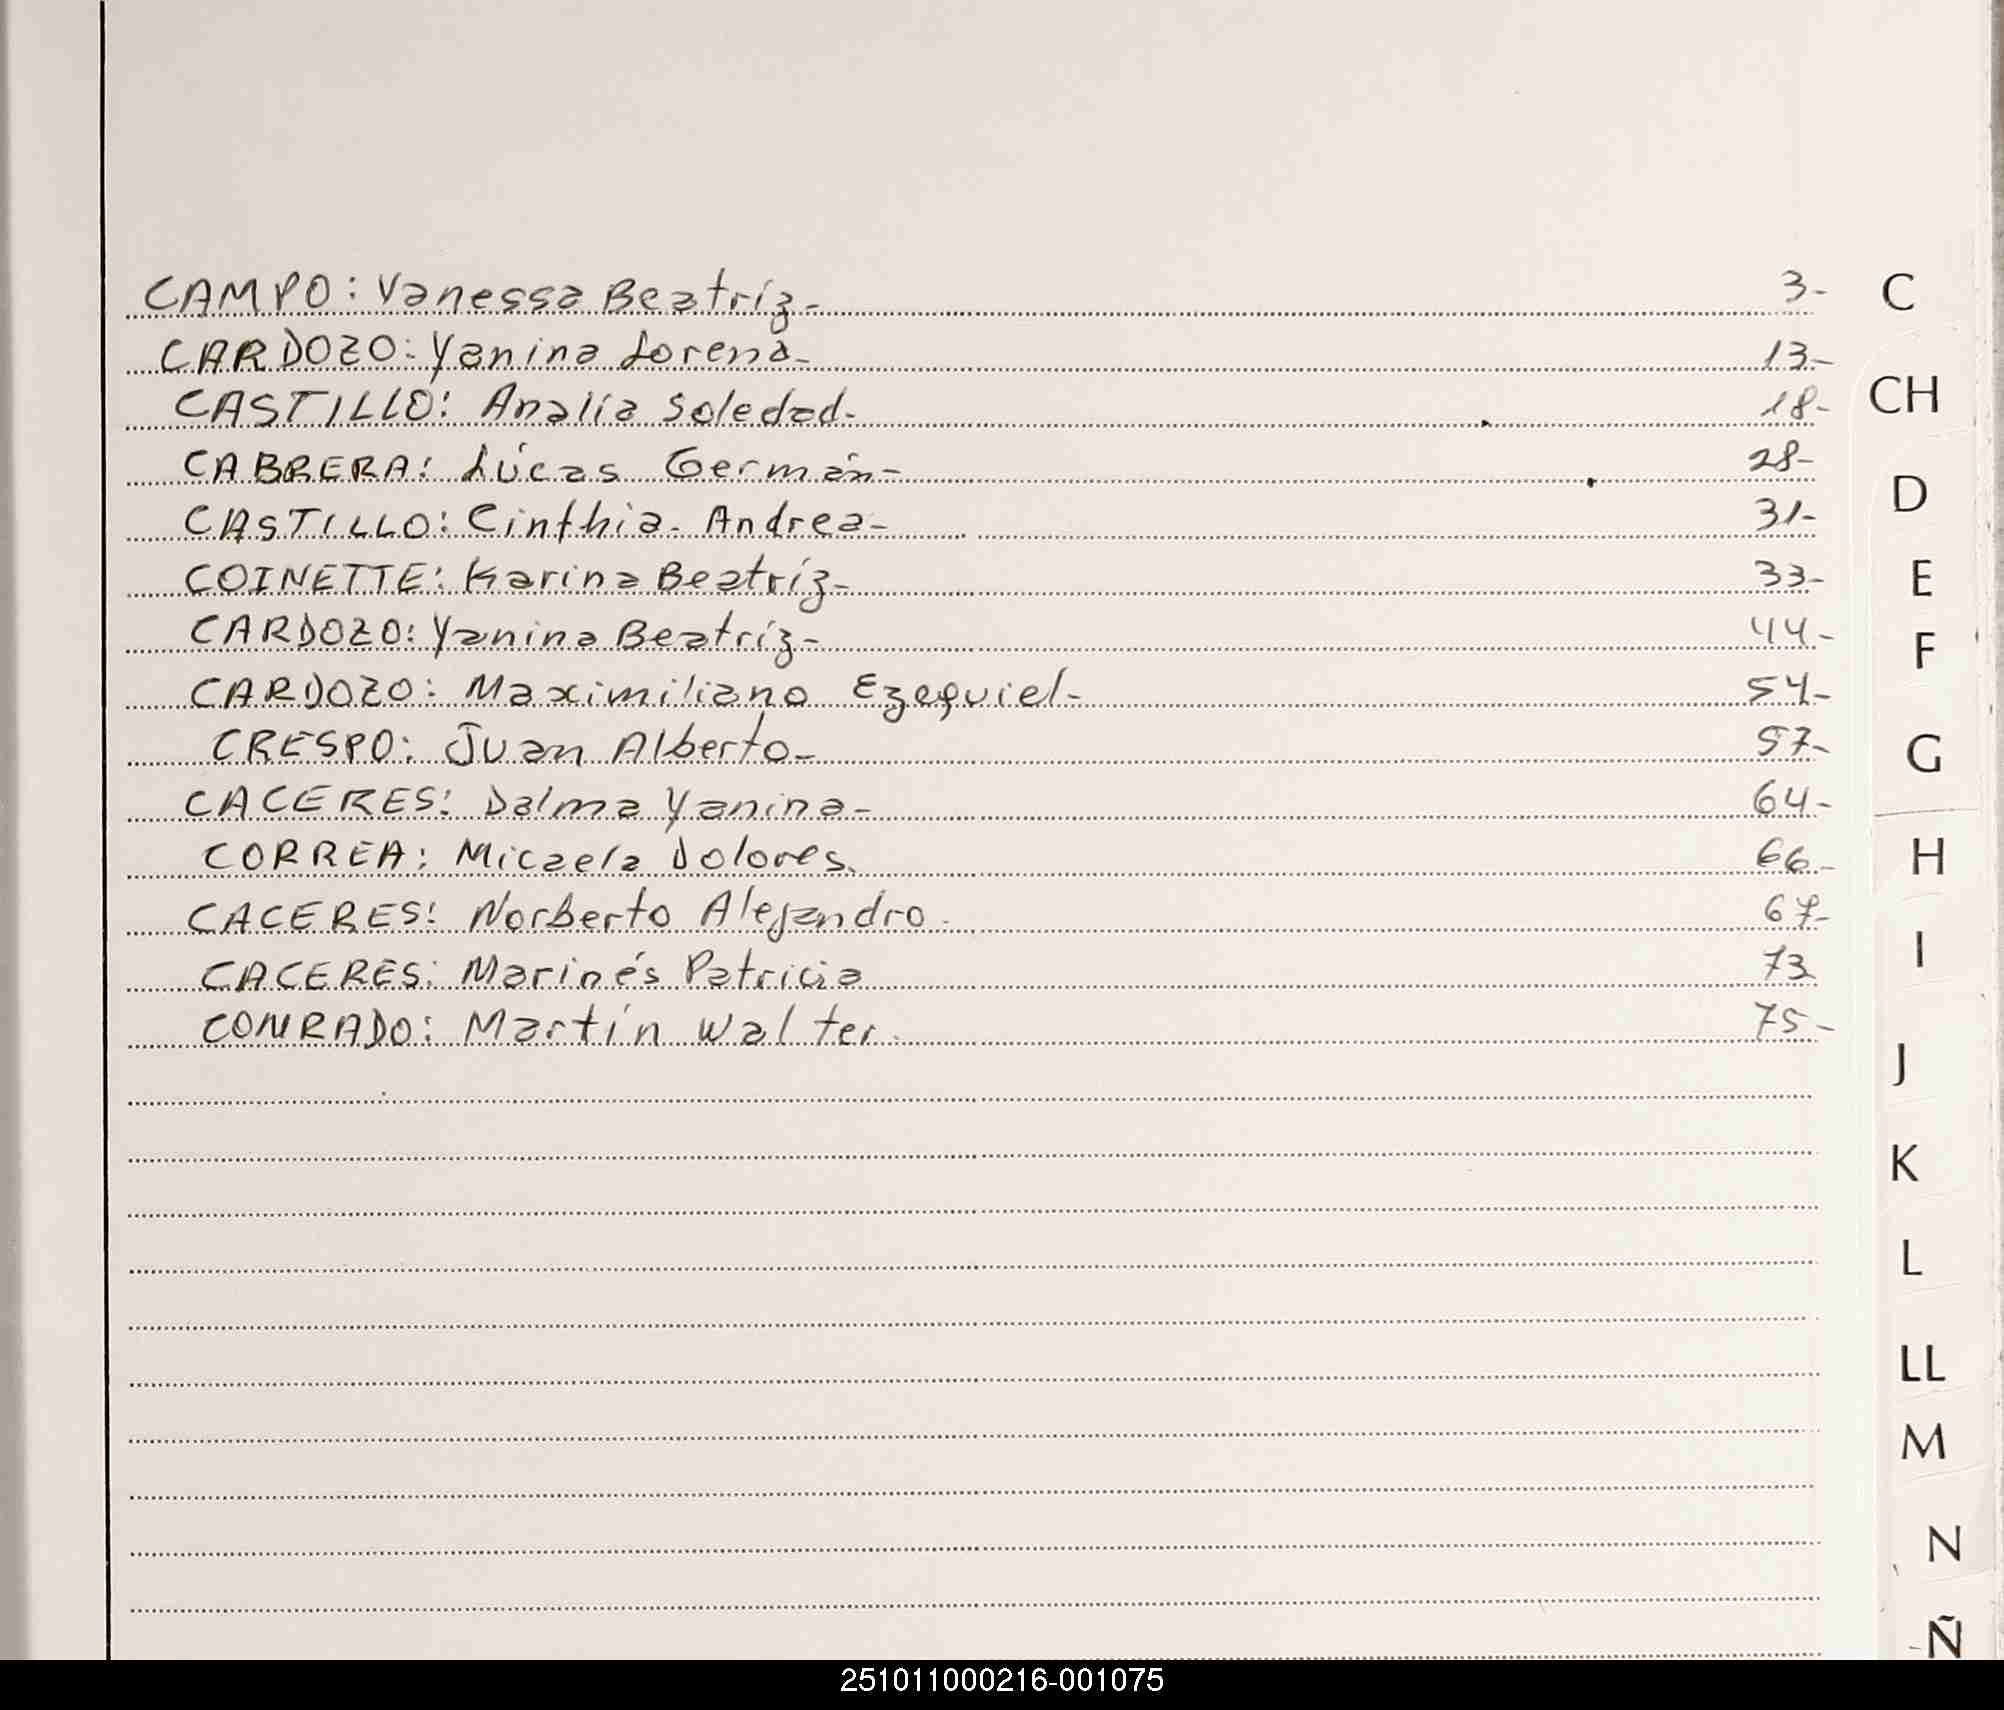 CAMPO: Vanessa Beatríz- 3-
CARDOZO: Yanina Lorena- 13-
CASTILLO: Analía Soledad- 18-
CABRERA: Lúcas Germán- 28-
CASTILLO: Cinthia- Andrea- 31-
COINETTE: Karina Beatríz- 33-
CARDOZO: Yanina Beatríz- 44-
CARDOZO: Maximiliano Ezequiel- 54-
CRESPO: Juan Alberto- 57-
CACERES: Dalma Yanina- 64-
CORREA: Micaela Dolores. 66-
CACERES: Norberto Alejandro. 67-
CACERES: Marinés Patricia 73
CONRADO: Martín Walter. 75-
C
CH
D
E
F
G
H
I
J
K
L
LL
M
N
Ñ
251011000216-001075